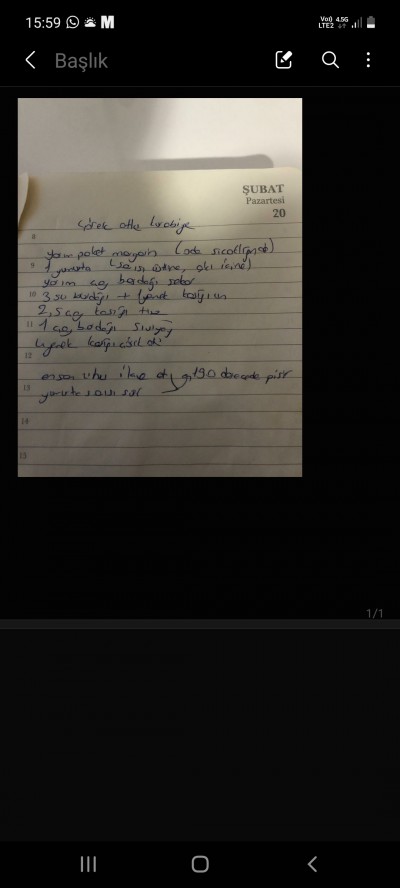 15:59
Vo)) 4.5G
LTE2
Başlık
ŞUBAT
Pazartesi
20
çörek otlu kurabiye
8
yarım paket margarin (oda sıcaklığında)
9 1 yumurta (sarısı üstüne, akı içine)
yarım çay bardağı şeker
10 3 su bardağı + 1 yemek kaşığı un
2,5 çay kaşığı tuz
11 1 çay bardağı sıvıyağ
1 yemek kaşığı
12
190 derecede pişir
13 yumurta sarısı sür
14
15
1/1